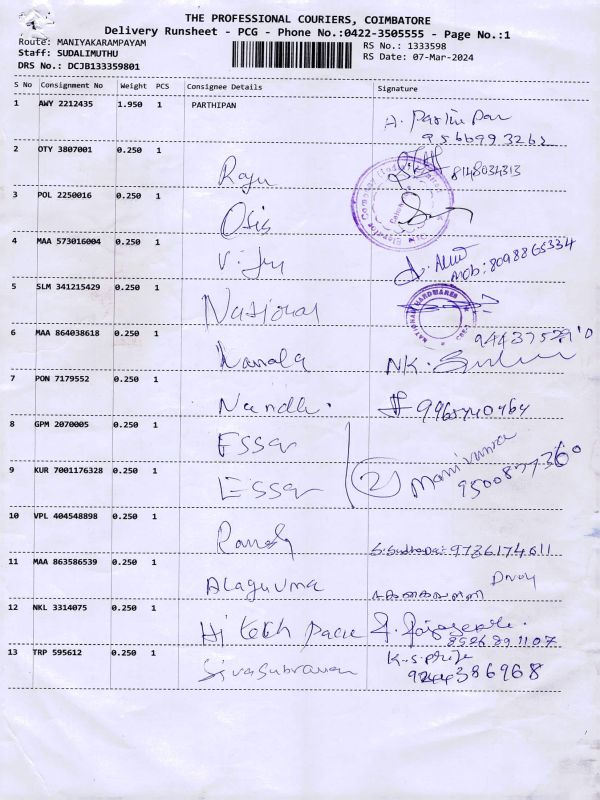 THE PROFESSIONAL COURIERS, COIMBATORE
Delivery Runsheet - PCG - Phone No.:0422-3505555 - Page No.:1
Route: MANIYAKARAMPAYAM
RS No.: 1333598
Staff: SUDALIMUTHU
RS Date: 07-Mar-2024
DRS No.: DCJB133359801
S No Consignment No Weight PCS Consignee Details Signature
1 AWY 2212435 1.950 1 PARTHIPAN A. Parthipan
9566993262
2 OTY 3807001 0.250 1 Raju 8148034313
3 POL 2250016 0.250 1 Osis
4 MAA 573016004 0.250 1 Viju
Mob: 8098865334
5 SLM 341215429 0.250 1 National NATIONAL HARDWARES
6 MAA 864038618 0.250 1 Kamala NK.
7 PON 7179552 0.250 1 Nandhi.
8 GPM 2070005 0.250 1 Essar
9 KUR 7001176328 0.250 1 Essar 2
10 VPL 404548898 0.250 1 Ramesh 9736174611
11 MAA 863586539 0.250 1 Alaguvma
12 NKL 3314075 0.250 1 Hi tekh pacu
8526891107
13 TRP 595612 0.250 1 Sivasubraman K.S. priya
9244386968